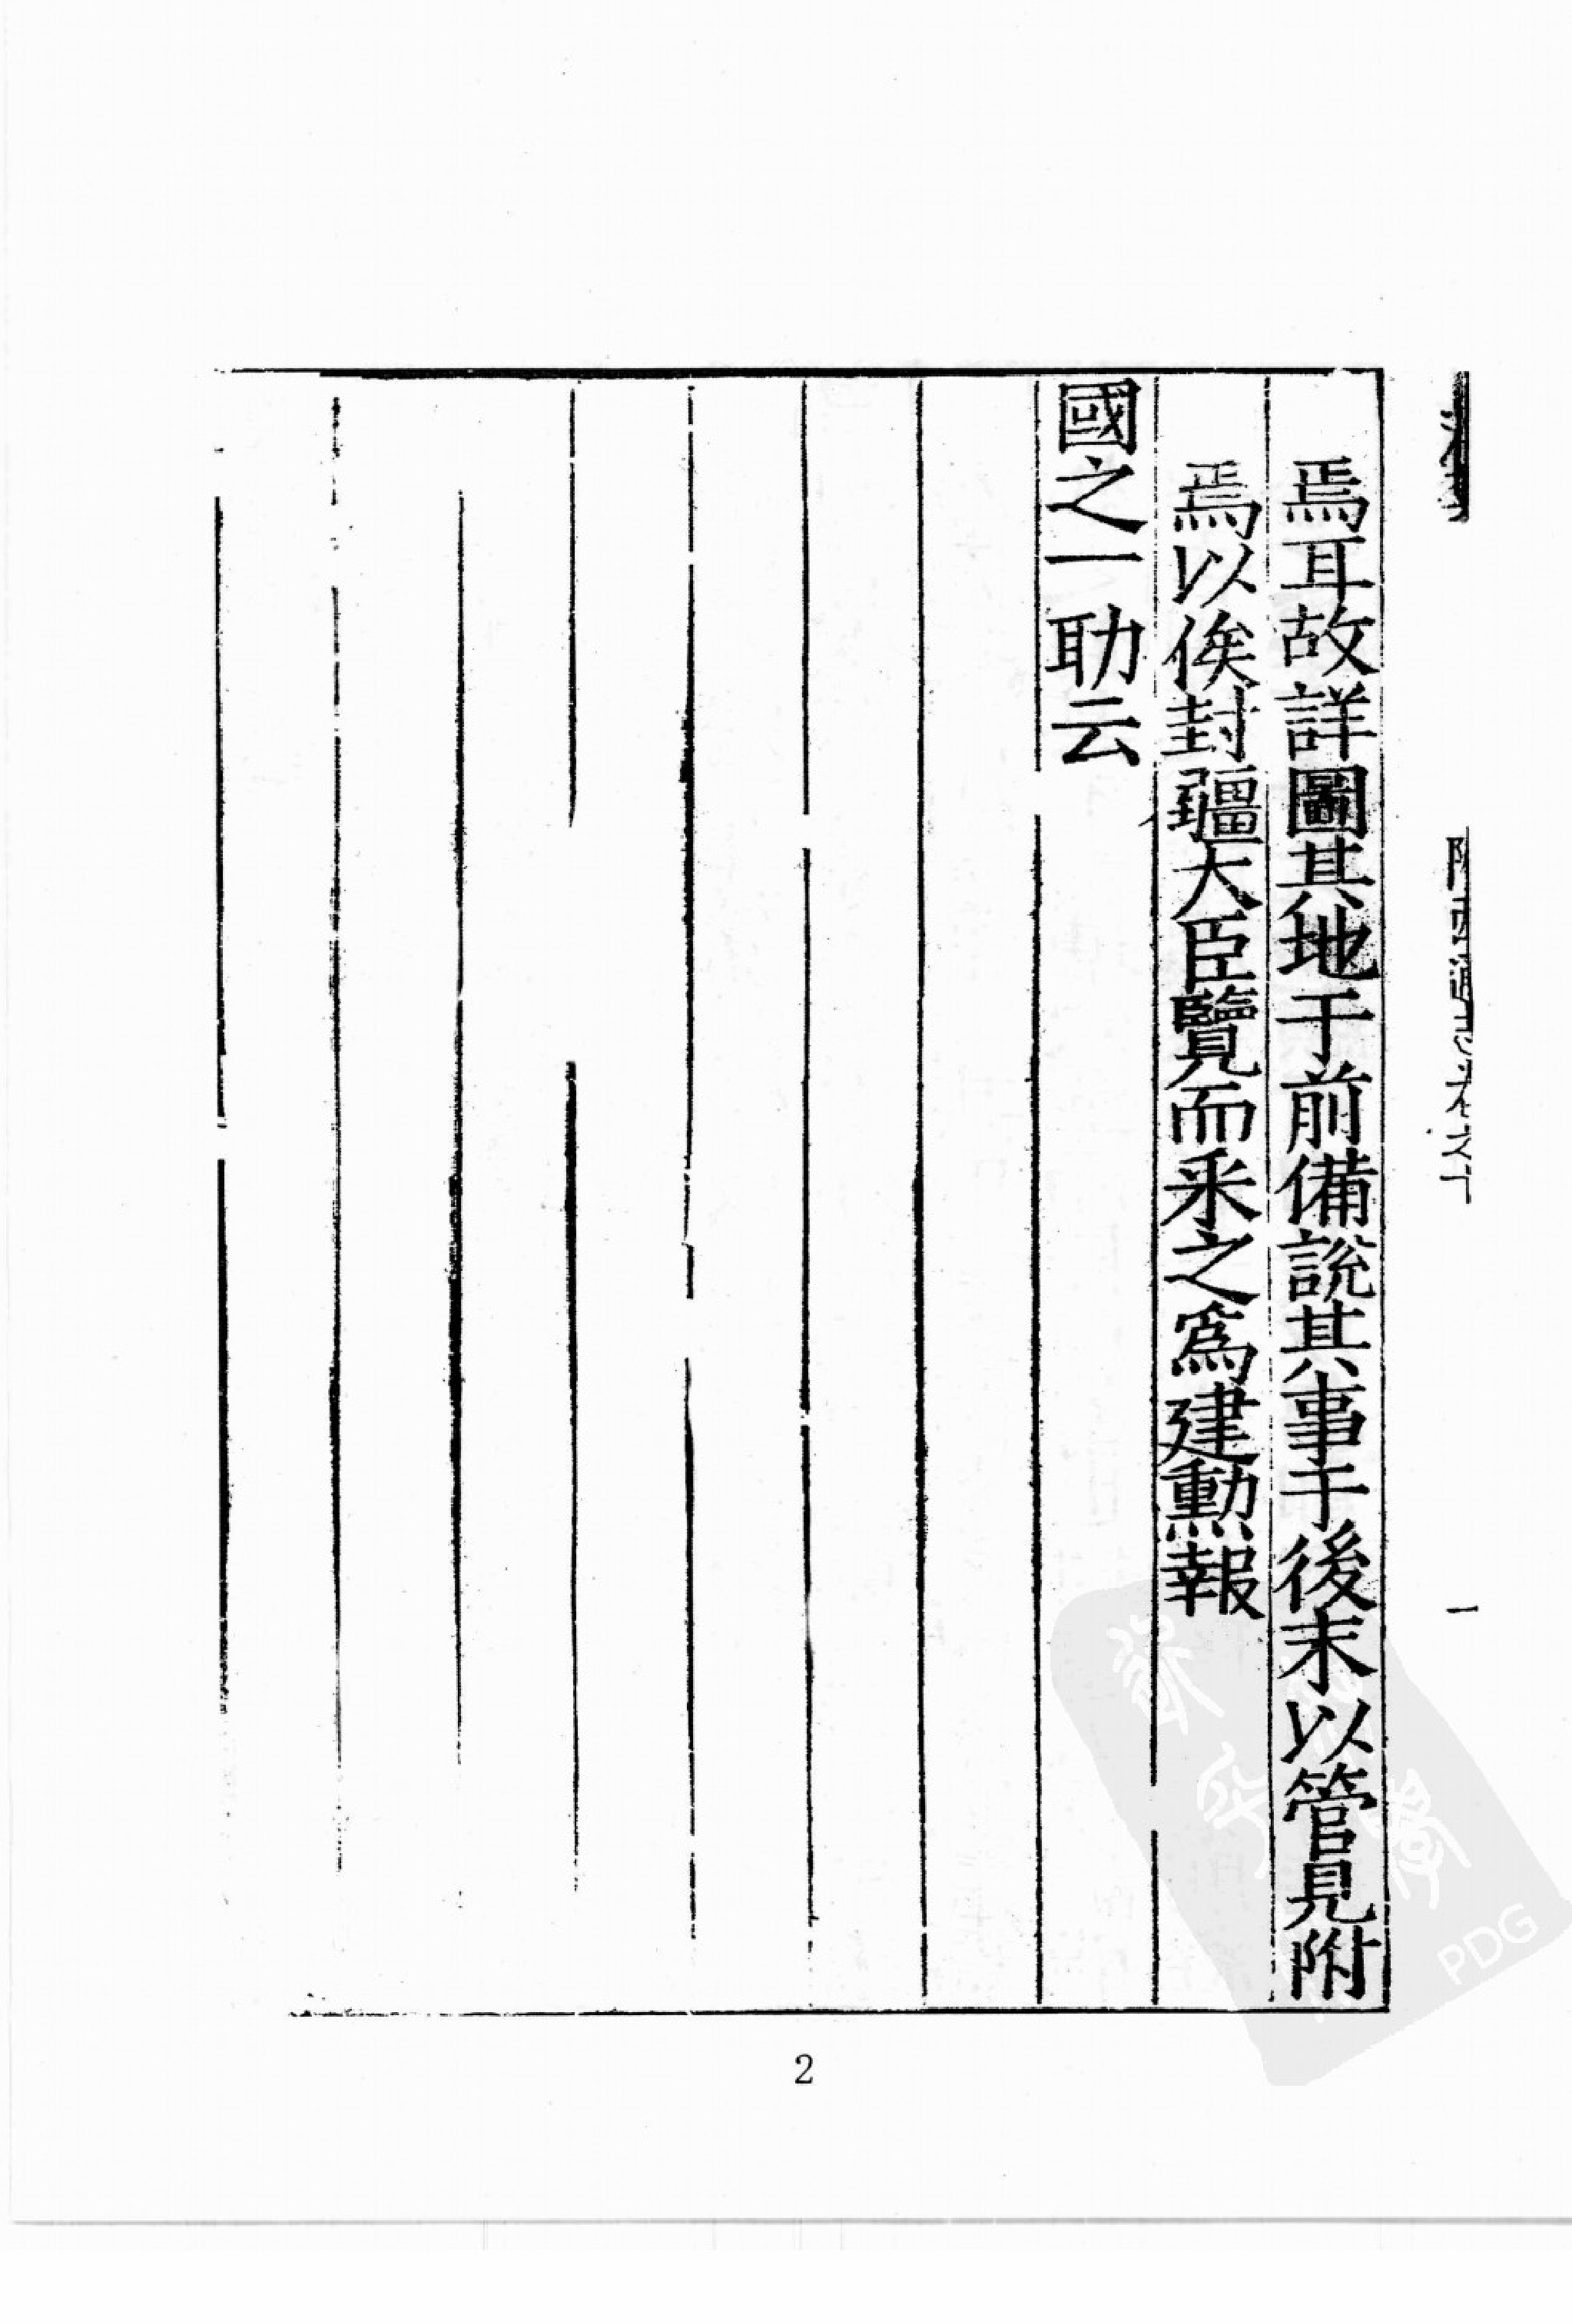 焉耳故詳圖其地于前備說其事于後末以管見附
焉以俟封疆大臣覽而采之爲建勲報
國之一助云
陝西通志卷之十
一
2
PDG